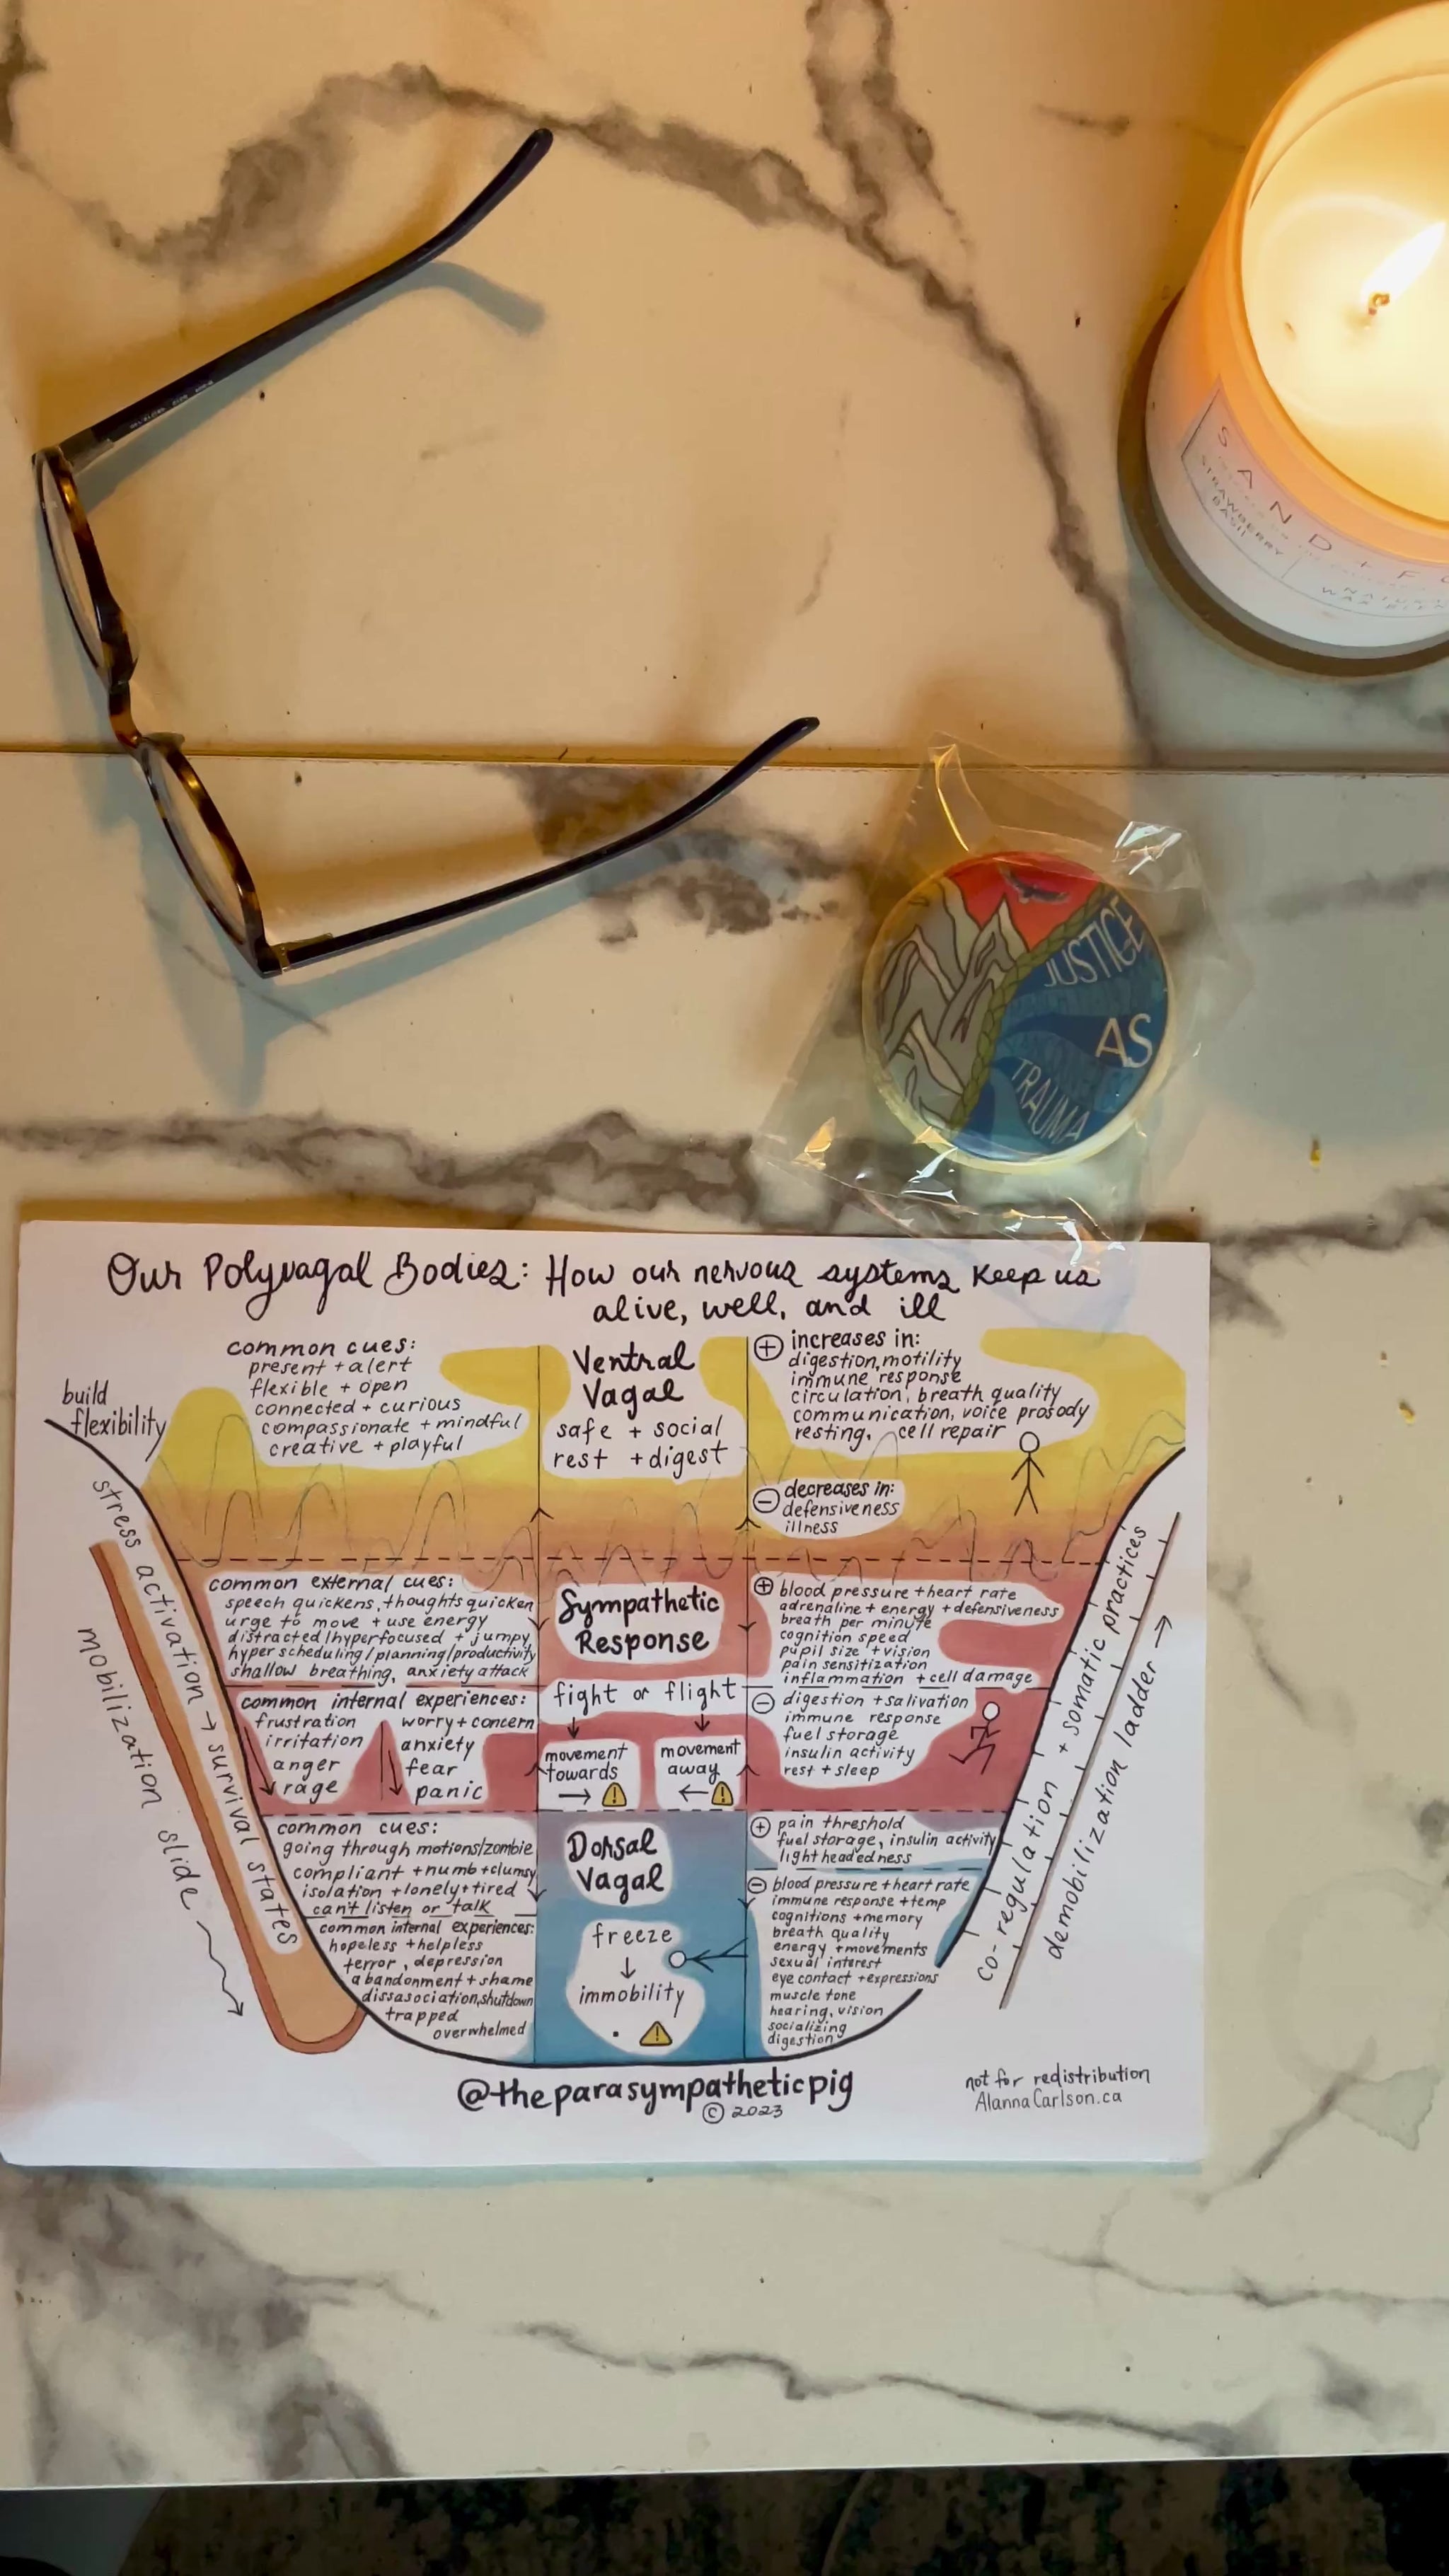 SAND + FO
STRAWBERRY
BASIL
NATURA
WAX BLEN
JUSTICE
AS
TRAUMA
Our Polyvagal Bodies: How our nervous systems keep us
alive, well, and ill
build
flexibility
stress activation → survival states
mobilization slide
common cues:
present + alert
flexible + open
connected + curious
compassionate + mindful
creative + playful
Ventral
Vagal
safe + social
rest + digest
+ increases in:
digestion, motility
immune response
circulation, breath quality
communication, voice prosody
resting, cell repair
- decreases in:
defensiveness
illness
common external cues:
speech quickens, thoughts quicken
urge to move + use energy
distracted/hyperfocused + jumpy
hyper scheduling/planning/productivity
shallow breathing, anxiety attack
common internal experiences:
frustration
irritation
anger
rage
worry + concern
anxiety
fear
panic
Sympathetic
Response
fight or flight
movement
towards
→
movement
away
←
+ blood pressure + heart rate
adrenaline + energy + defensiveness
breath per minute
cognition speed
pupil size + vision
pain sensitization
inflammation + cell damage
- digestion + salivation
immune response
fuel storage
insulin activity
rest + sleep
common cues:
going through motions/zombie
compliant + numb + clumsy
isolation + lonely + tired
can't listen or talk
common internal experiences:
hopeless + helpless
terror, depression
abandonment + shame
dissasociation, shutdown
trapped
overwhelmed
Dorsal
Vagal
freeze
↓
immobility
+ pain threshold
fuel storage, insulin activity
lightheadedness
- blood pressure + heart rate
immune response + temp
cognitions + memory
breath quality
energy + movements
sexual interest
eye contact + expressions
muscle tone
hearing, vision
socializing
digestion
co-regulation + somatic practices
demobilization ladder →
@theparasympatheticpig
© 2023
not for redistribution
AlannaCarlson.ca